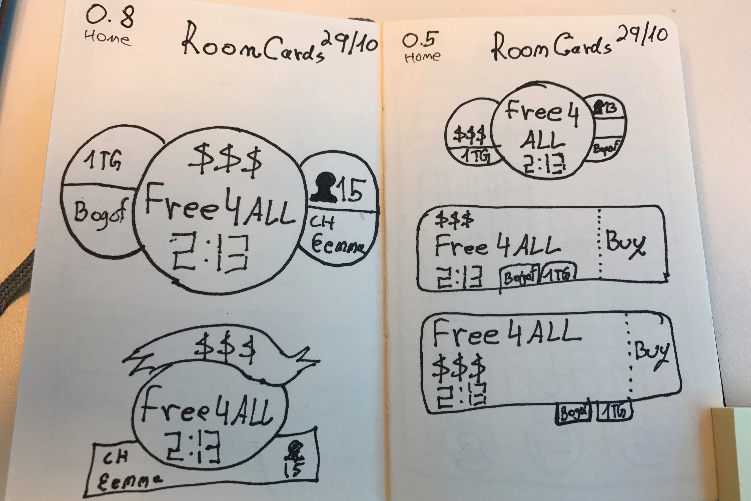 0.8
Home
Room Cards 29/10
$$$
1TG
Free4ALL
15
Bogof
2:13
CH
Eemma
$$$
Free4ALL
2:13
CH
Eemma
15
0.5
Home
Room Cards 29/10
Free4
ALL
2:13
$$$
1TG
13
Bogof
$$$
Free 4 ALL
2:13
Bogof
1TG
Buy
Free 4 ALL
$$$
2:13
Buy
Bogof
1TG